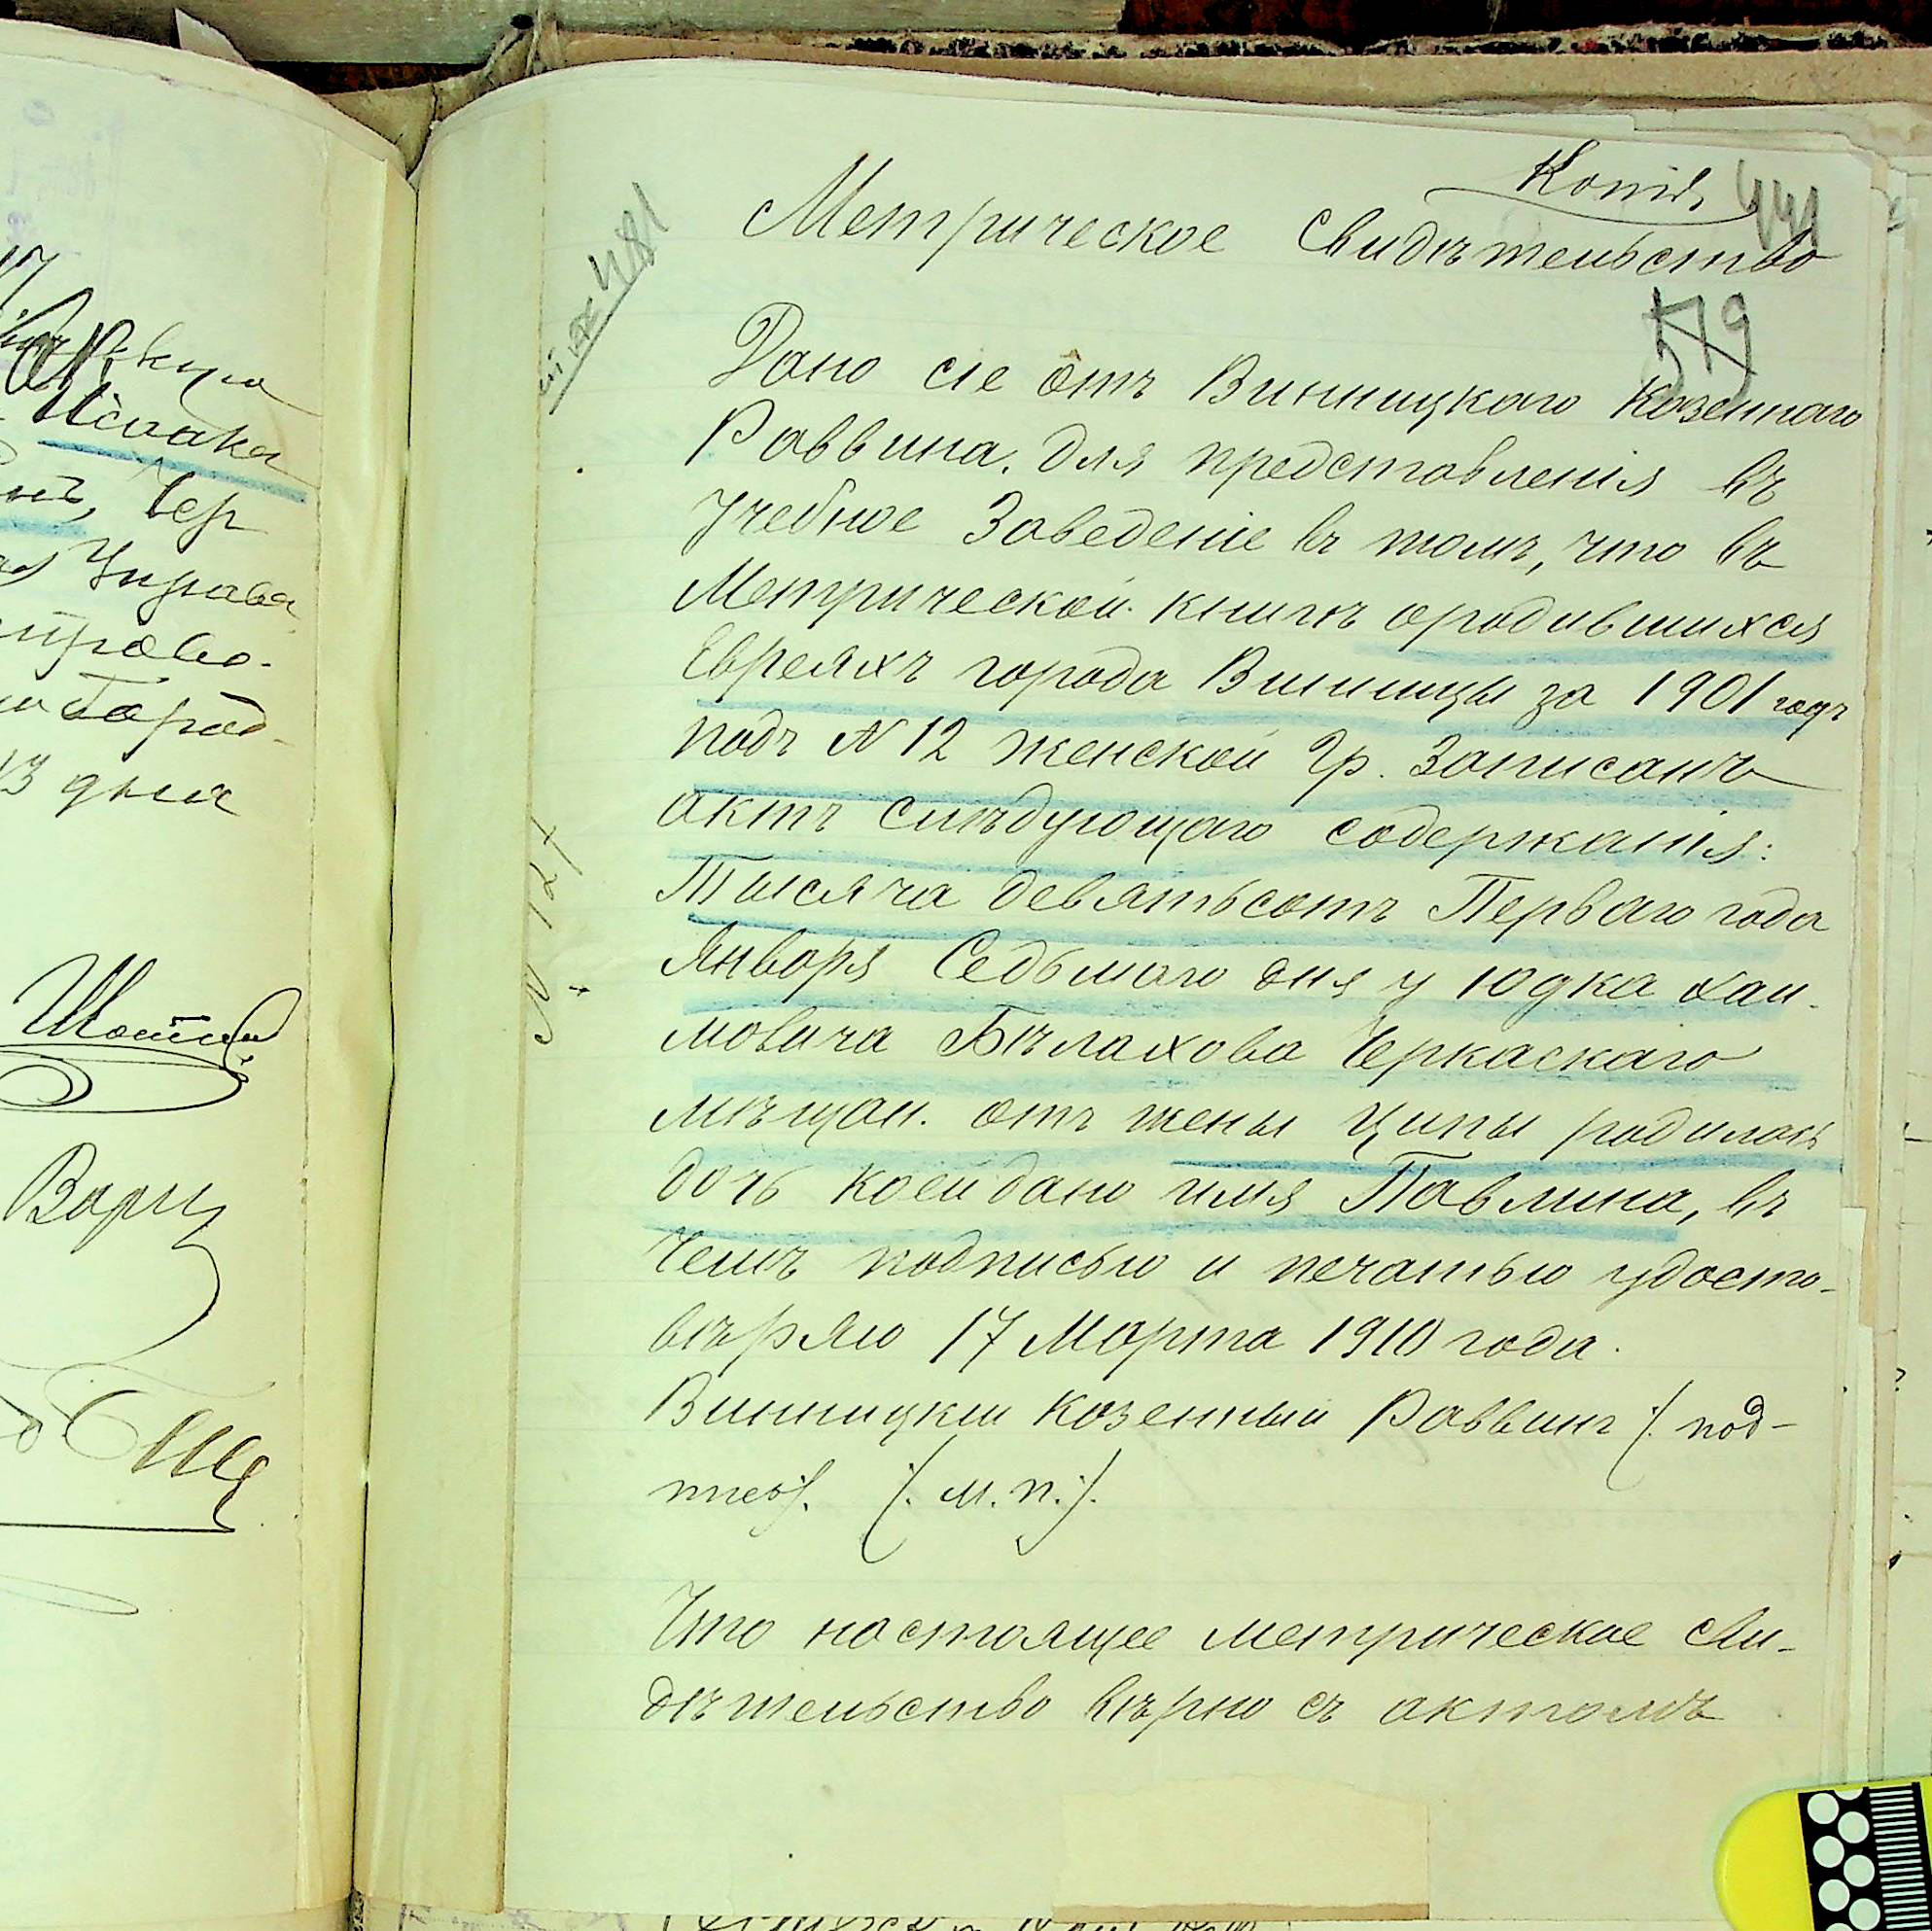 Копія
441
Метрическое Свидѣтельство
579
Дано сіе отъ Винницкаго Казеннаго
Раввина, для представленія въ
Учебное Заведеніе въ томъ, что въ
Метрической книгѣ о родившихся
Евреяхъ города Винницы за 1901 годъ
подъ № 12 женской гр. записанъ
актъ слѣдующаго содержанія:
Тысяча девятьсотъ Перваго года
Января Седьмого дня у Юдка Хаи-
мовича Бѣлахова Черкаскаго
мѣщан. отъ жены Ципы родилась
дочь коей дано имя Павлина, въ
чемъ подписью и печатью удосто-
вѣряю 17 Марта 1910 года.
Винницкій Казенный Раввинъ /: под-
пись:/. /: м. п. :/.
Что настоящее метрическое сви-
дѣтельство вѣрно съ актомъ
№ 127
481
Исаака
Чер
Управа
город-
дня